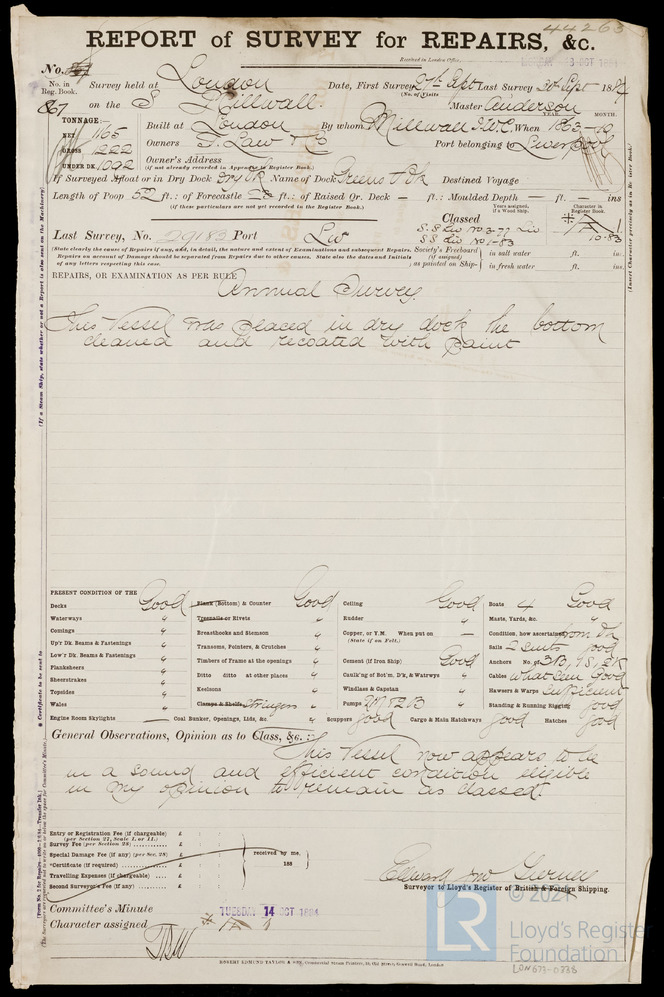 44263
REPORT of SURVEY for REPAIRS, &c.
Received in London Office,
13 OCT 1884
No.
No. in Reg. Book.
867
Survey held at London Date, First Survey 27th Sept Last Survey 30th Sept 1884
(No. of Visits )
on the S Millwall Master Anderson
TONNAGE:—
NET 1165
GROSS 1222
UNDER DK. 1092
YEAR. MONTH.
Built at London By whom Millwall I.W.C. When 1863-10
Owners T. Law & Co Port belonging to Liverpool
Owner's Address
(if not already recorded in Appendix to Register Book.)
If Surveyed Afloat or in Dry Dock Dry Dk Name of Dock Greens Dk Destined Voyage
Length of Poop 52 ft.: of Forecastle 28 ft.: of Raised Qr. Deck — ft.: Moulded Depth — ft. — ins
Years assigned, if a Wood Ship.
Character in Register Book.
Classed
S.S Liv No 3-77 Liv
S S Liv No 1-83
A 1
10-83
Last Survey, No. 29183 Port Liv
(State clearly the cause of Repairs if any, and, in detail, the nature and extent of Examinations and subsequent Repairs.
Repairs on account of Damage should be separated from Repairs due to other causes. State also the dates and Initials
of any letters respecting this case.
Society's Freeboard (if assigned) as painted on Ship—
in salt water ft. in.
in fresh water ft. ins.
REPAIRS, OR EXAMINATION AS PER RULE
Annual Survey
This Vessel was placed in dry dock the bottom
cleaned and recoated with paint
(If a Steam Ship, state whether or not a Report is also sent on the Machinery.)
(Insert Character precisely as in the Register Book.)
PRESENT CONDITION OF THE
Decks Good
Waterways "
Comings "
Up'r Dk. Beams & Fastenings "
Low'r Dk. Beams & Fastenings "
Planksheers "
Sheerstrakes "
Topsides "
Wales "
Engine Room Skylights —
Plank (Bottom) & Counter Good
Treenails or Rivets "
Breasthooks and Stemson "
Transoms, Pointers, & Crutches "
Timbers of Frame at the openings "
Ditto ditto at other places "
Keelsons "
Clamps & Shelfs Stringers "
Coal Bunker, Openings, Lids, &c. "
Ceiling Good
Rudder "
Copper, or Y.M. When put on —
(State if on Felt.)
Cement (if Iron Ship) Good
Caulk'ng of Bot'm, D'k, & Watrwys "
Windlass & Capstan "
Pumps "
Scuppers good
Cargo & Main Hatchways good
Boats 4 Good
Masts, Yards, &c. "
Condition, how ascertained from Dk
Sails 2 Suits good
Anchors No. of 3B, 1S, 2K
Cables what seen Good
Hawsers & Warps Sufficient
Standing & Running Rigging Good
Hatches Good
General Observations, Opinion as to Class, &c. :—
This Vessel now appears to be
in a sound and efficient condition eligible
in my opinion to remain as classed.
Entry or Registration Fee (if chargeable) £
(per Section 27, Scale 1, or 11.)
Survey Fee (per Section 28) £
Special Damage Fee (if any) (per Sec. 28) £
*Certificate (if required) £
Travelling Expenses (if chargeable) £
Second Surveyor's Fee (if any) £
received by me,
188
Surveyor to Lloyd's Register of British & Foreign Shipping.
Committee's Minute TUESDAY 14 OCT 1884
Character assigned A 1
* Certificate to be sent to
(Form No. 7 for Repairs
ROBERT EDMUND TAYLOR & SON,
© 2021
LR
Lloyd's Register
Foundation
LON677-0338